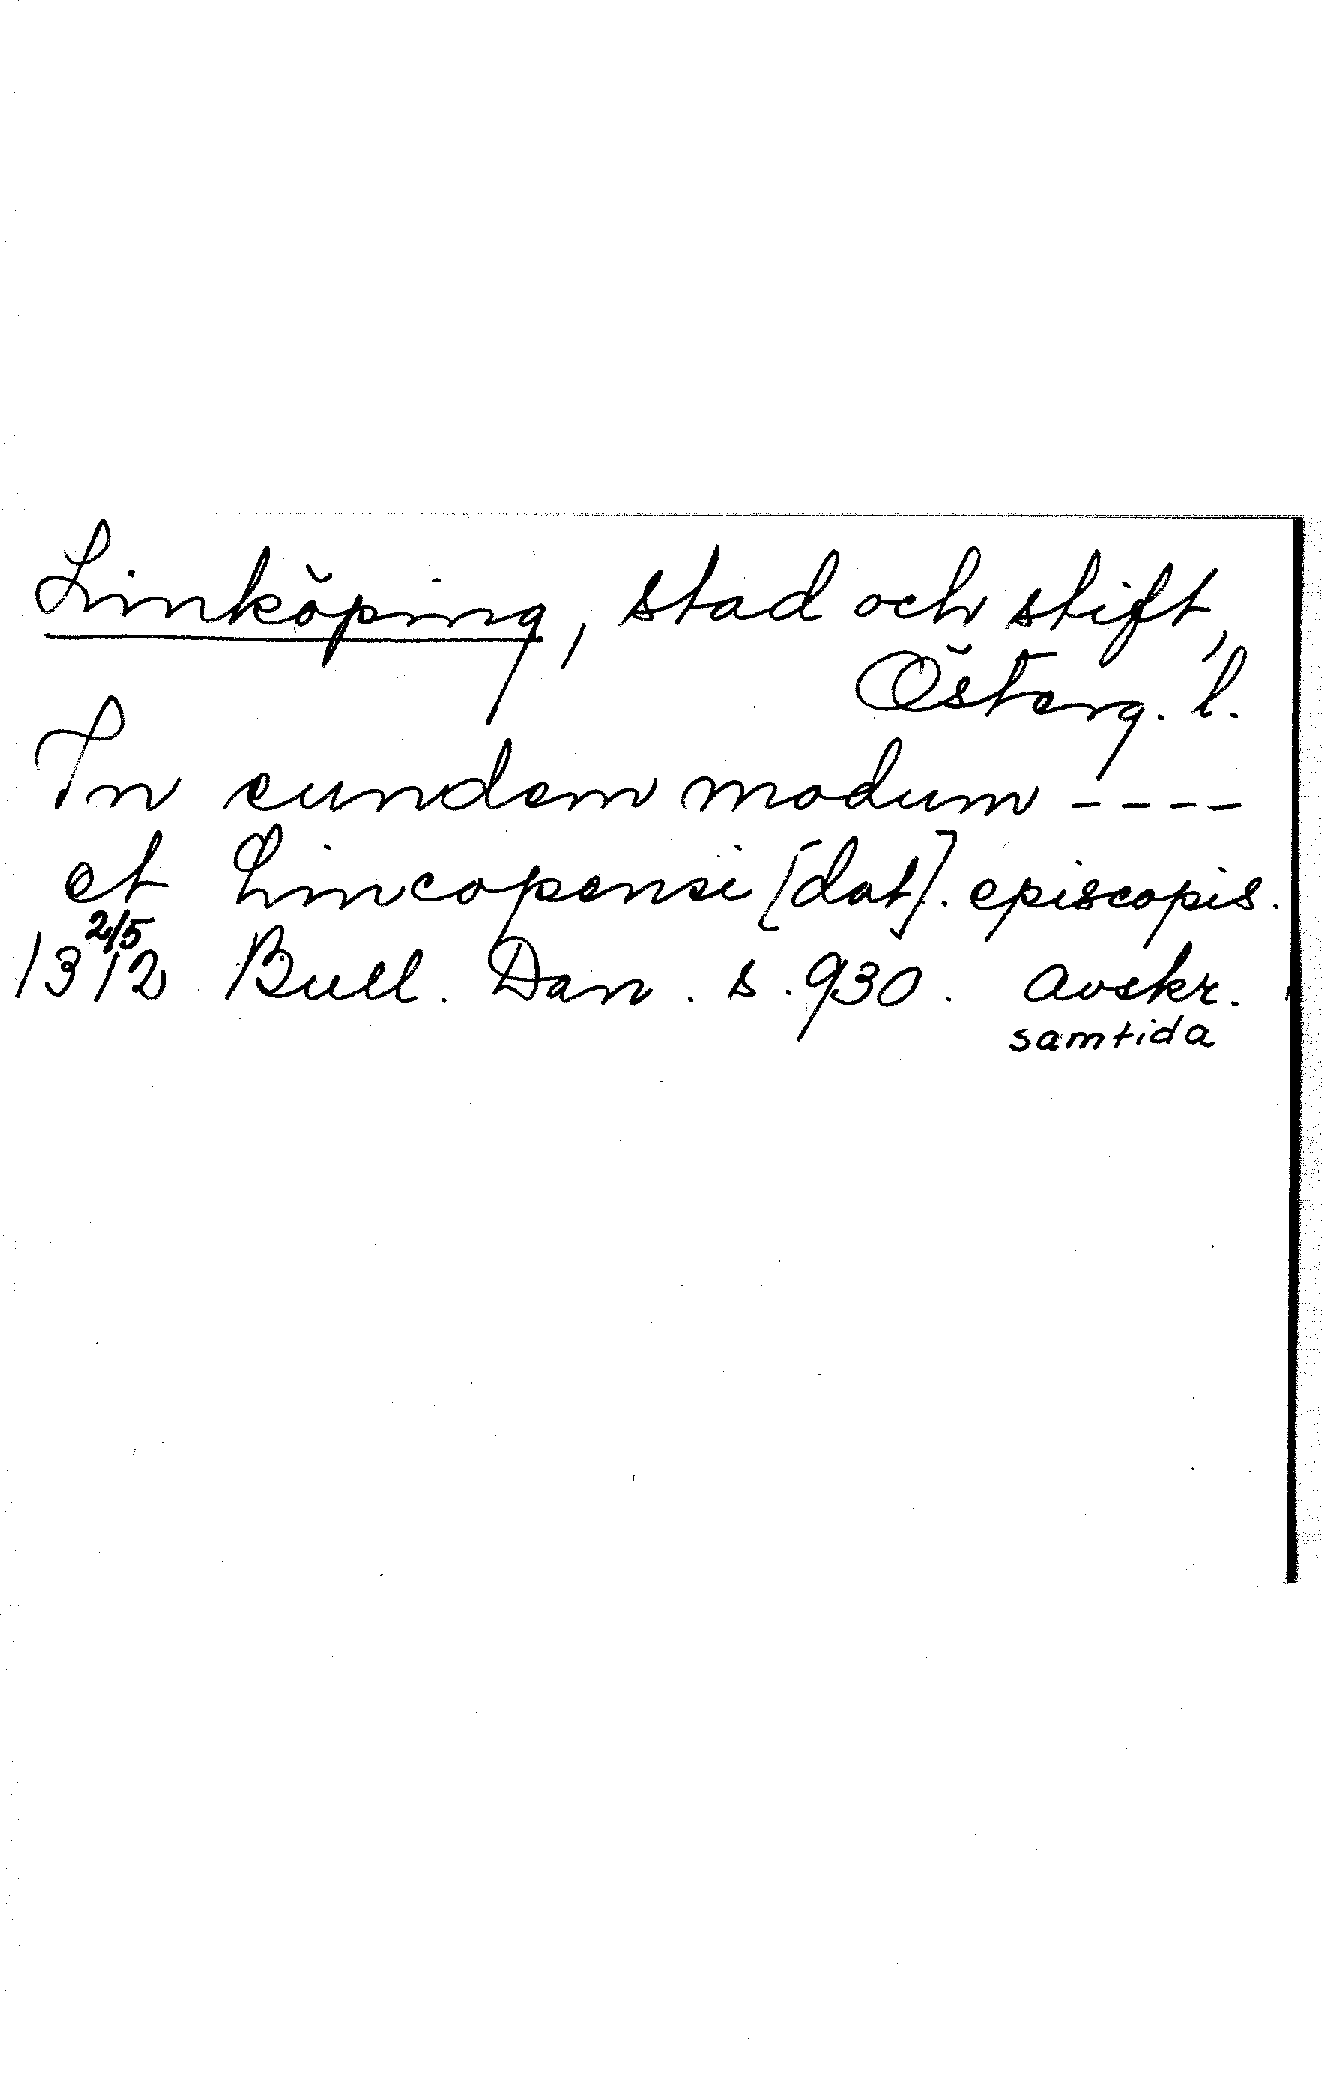 Linköping, stad och stift,
Österg. l.
In eundem modum ----
et Lincopensi [dat]. episcopis.
1312 2/5 Bull. Dan. s. 930. Avskr.
samtida